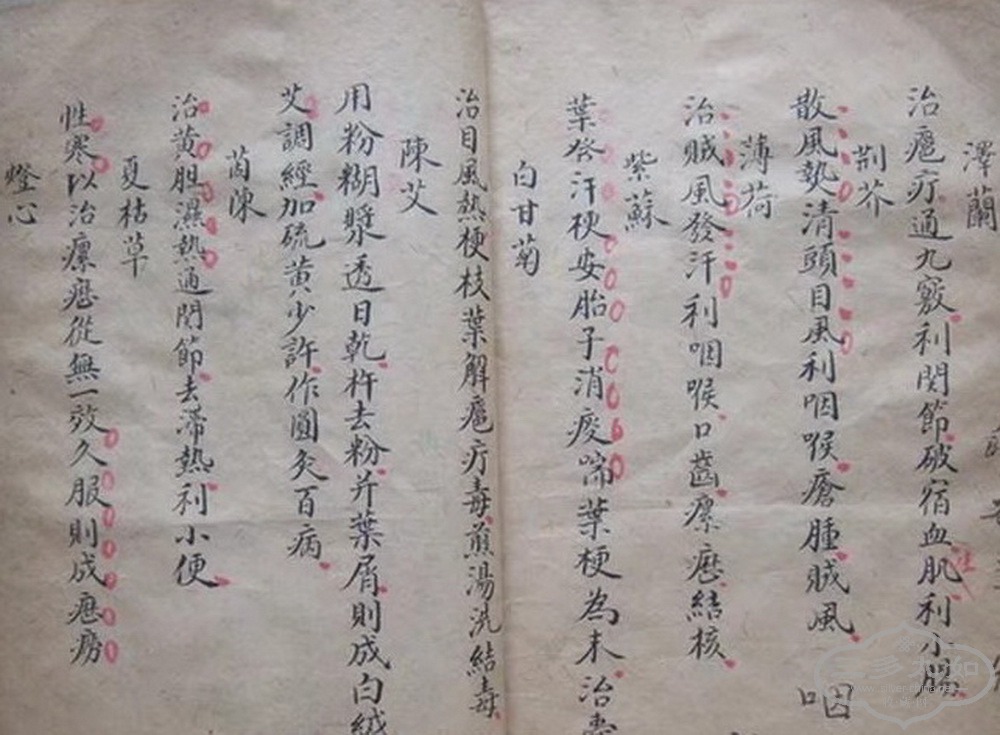 澤蘭
治㾴疔通九竅利関節破宿血肌利小腸
荆芥
散風埶清頭目風利咽喉瘡腫賊風
咽
薄荷
治賊風發汗利咽喉口齒瘰癧結核
紫蘇
葉発汗梗安胎子消痰喘葉梗為末治
白甘菊
治目風熱梗枝葉解㾴疔毒煎湯洗結毒
陳艾
用粉糊漿透日乾杵去粉并葉屑則成白絨
艾調經加硫黄少許作圓灸百病
茵陳
治黄胆濕熱通関節去滞熱利小便
夏枯草
性寒以治瘰癧從無一效久服則成
燈心